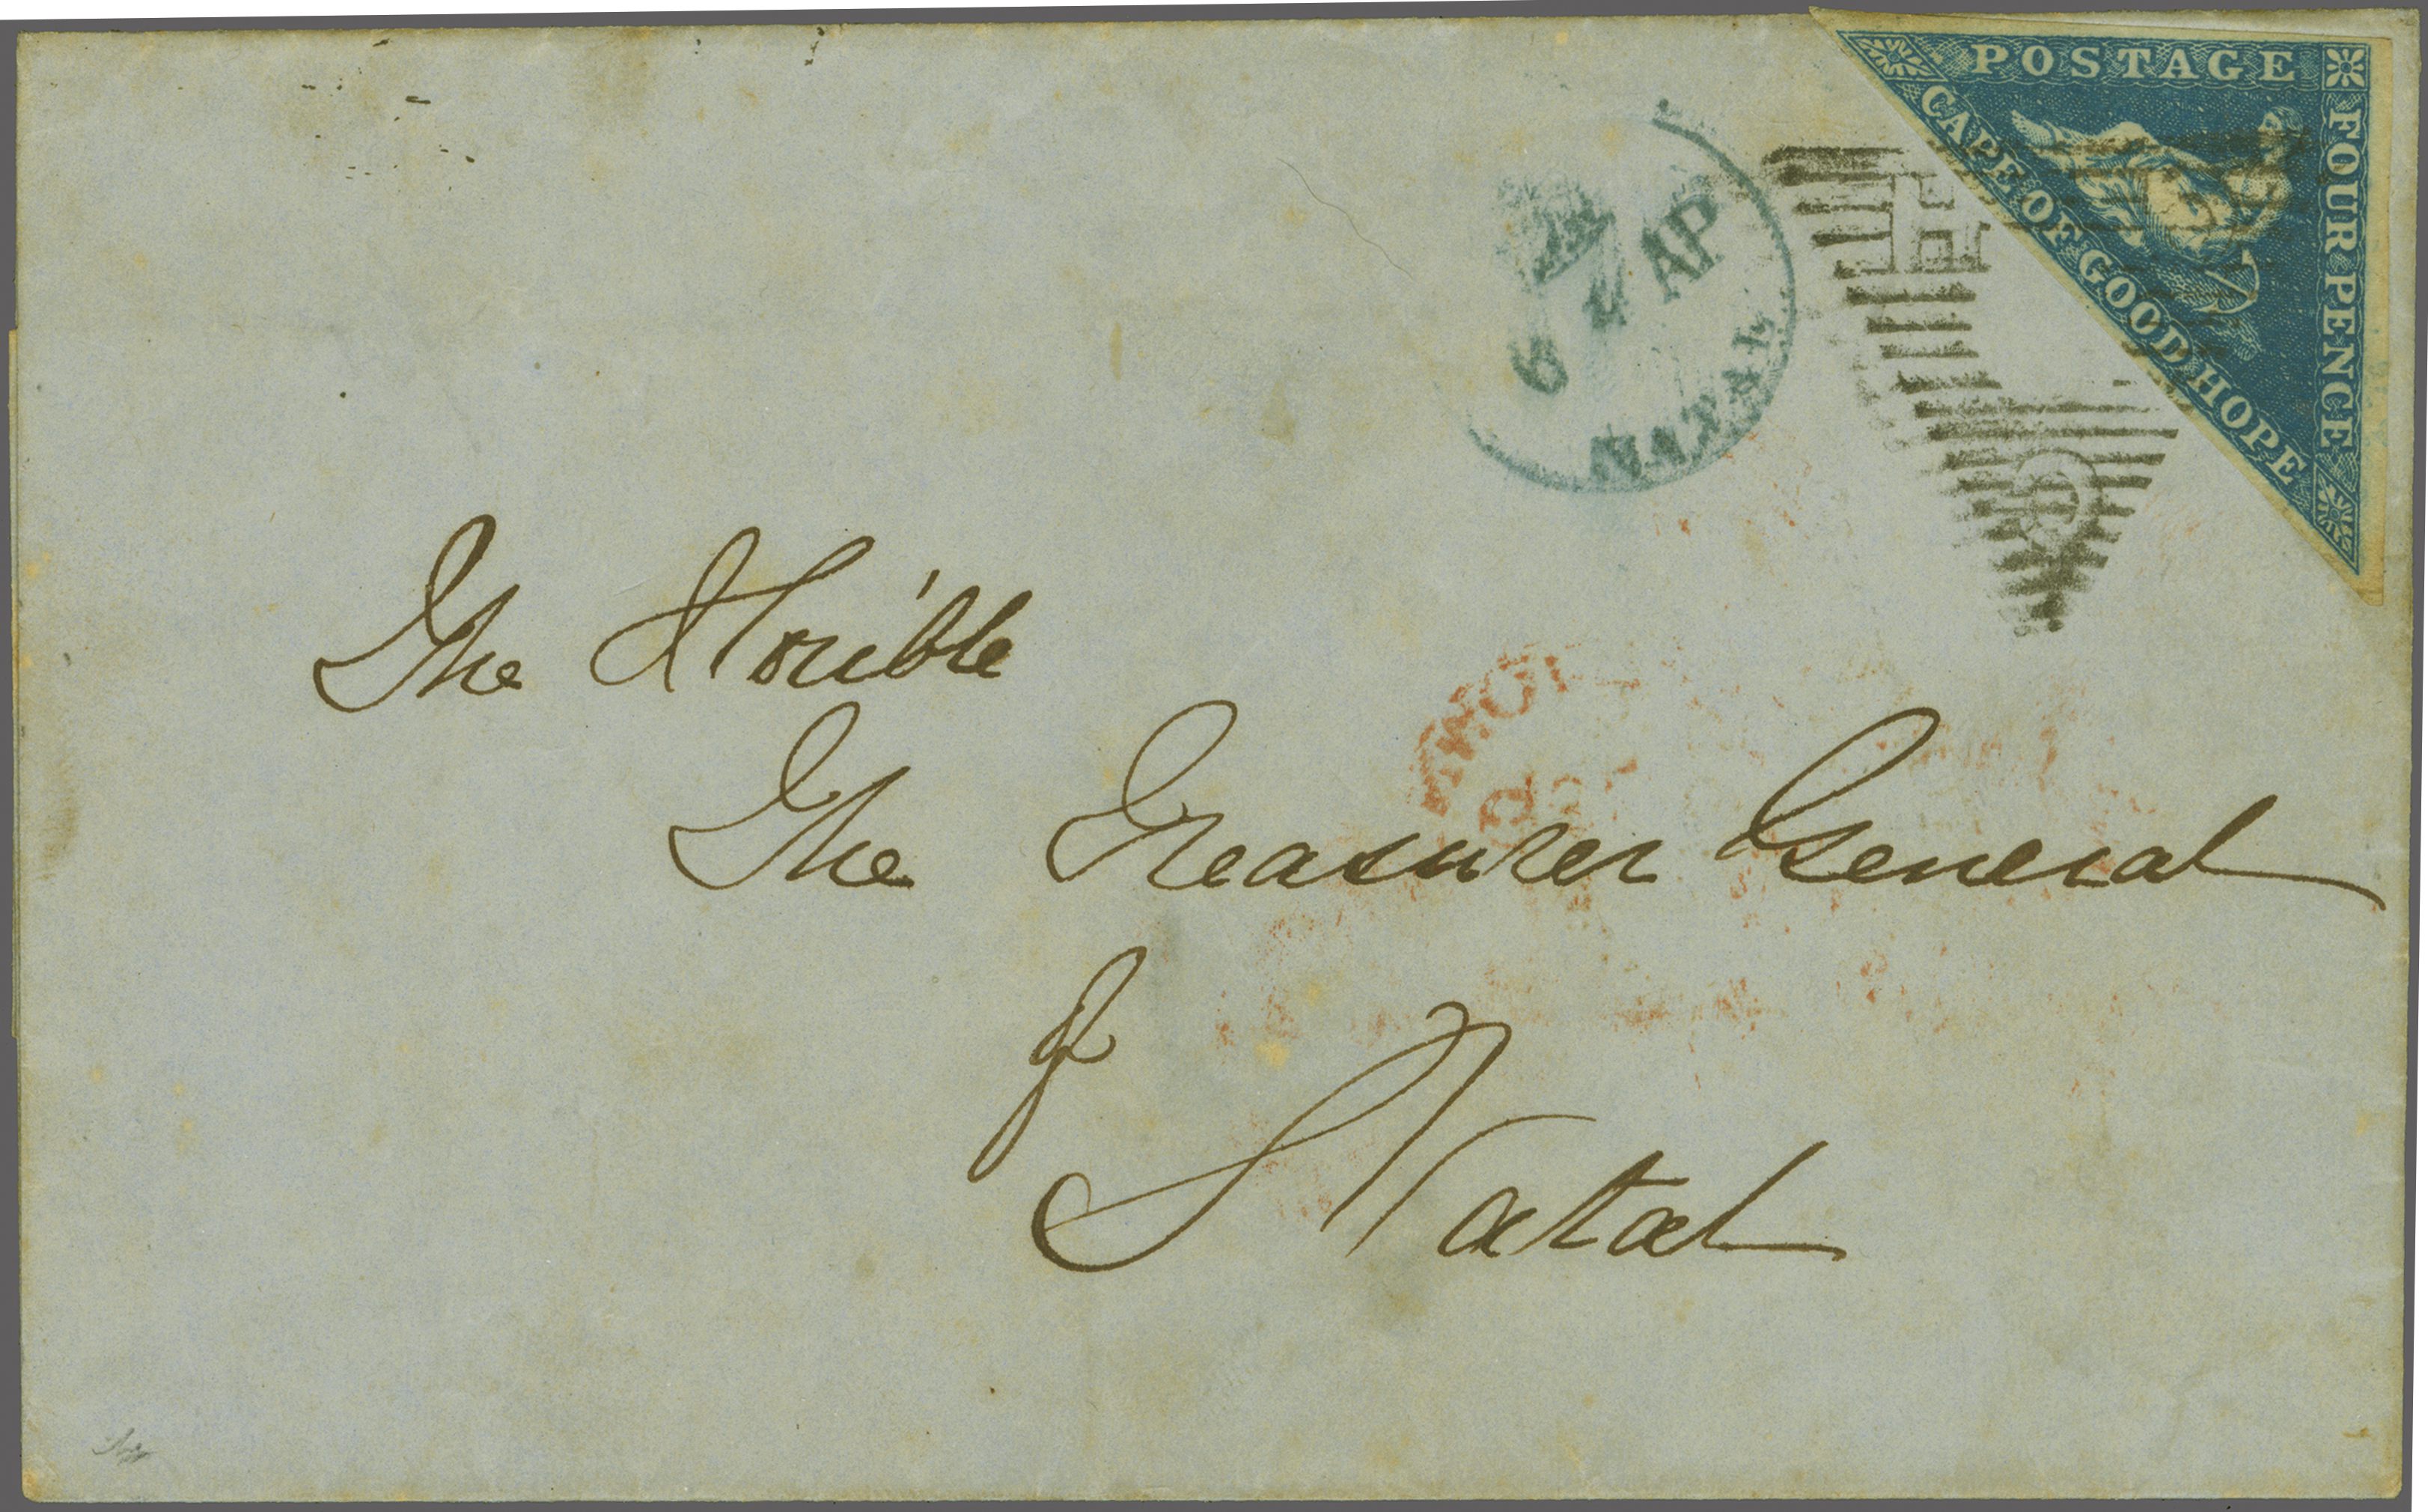 POSTAGE
FOUR PENCE
CAPE OF GOOD HOPE
CGH
AP
NATAL
The Hon'ble
The Treasurer General
of
Natal